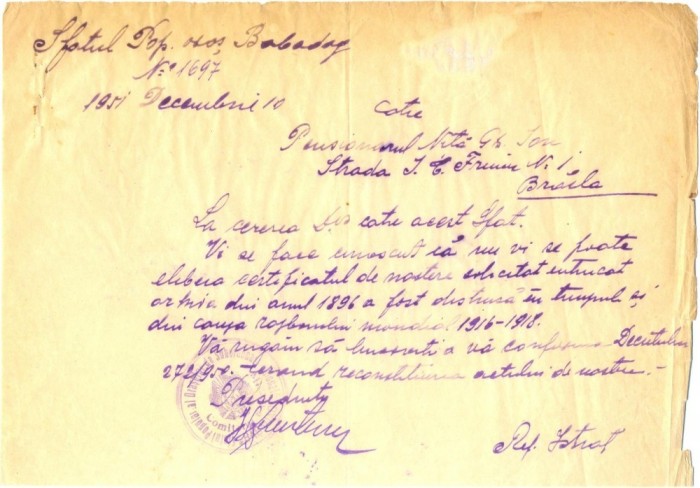 Sfatul Pop. oraș Babadag
Nº 1697
1951 Decembrie 10
Catre
Pensionarul Nită Gh. Ion
Strada I. C. Frimu Nº 1
Brăila
La cererea Dvs catre acest Sfat.
Vi se face cunoscut că nu vi se poate
elibera certificatul de nastere solicitat intrucat
arhiva din anul 1896 a fost distrusă în timpul și
din cauza războiului mondial 1916-1918.
Vă rugăm să binevoiti a vă conforma Decretului
272/950. cerand reconstituirea actului de nastere.-
Președinte
Ref. Istrat
Comite